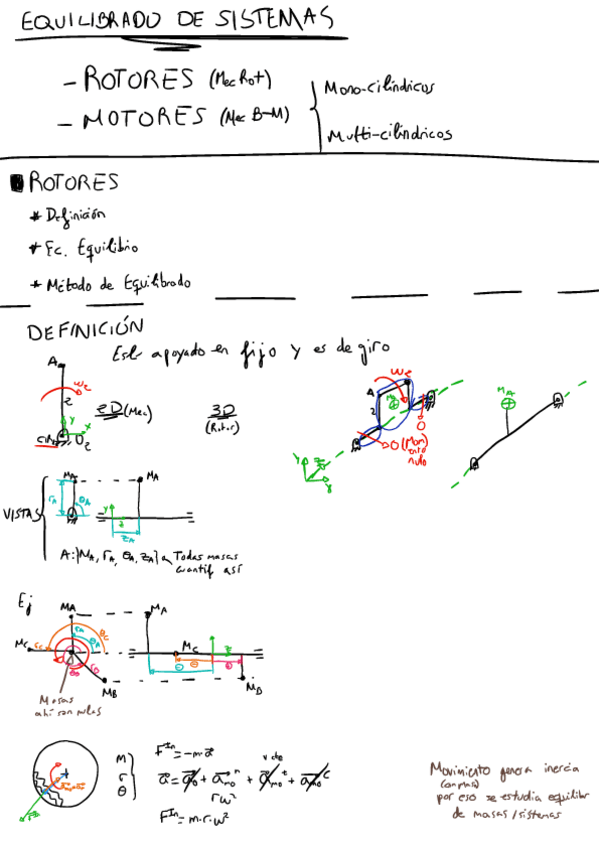 EQUILIBRADO DE SISTEMAS
- ROTORES (Mec Rot)
- MOTORES (Mec B-M)
Mono-cilíndricos
Multi-cilíndricos
ROTORES
* Definición
* Ec. Equilibrio
* Método de Equilibrado
DEFINICIÓN
Está apoyado en fijo y es de giro
A
2
Y
X
O2
2D (Mec)
3D
(Rotor)
A
2
O
O (Mom
ento
nulo)
MA
VISTAS
MA
rA
θA
MA
Y
ZA
A: {MA, rA, θA, ZA} Todas masas
cuantif así
Ej
MA
MA
MC
MC
MB
Masas
ahí son nulas
M
r
θ
F^In = -m·a
rω²
F^In = m·r·ω²
Movimiento genera inercia
por eso se estudia equilibr
de masas/sistemas